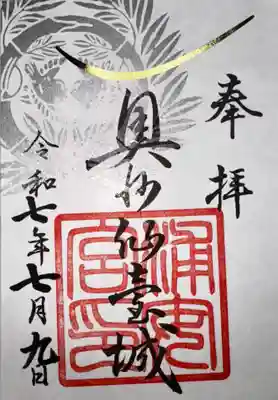 奉拝
奥州仙臺城
令和七年七月九日